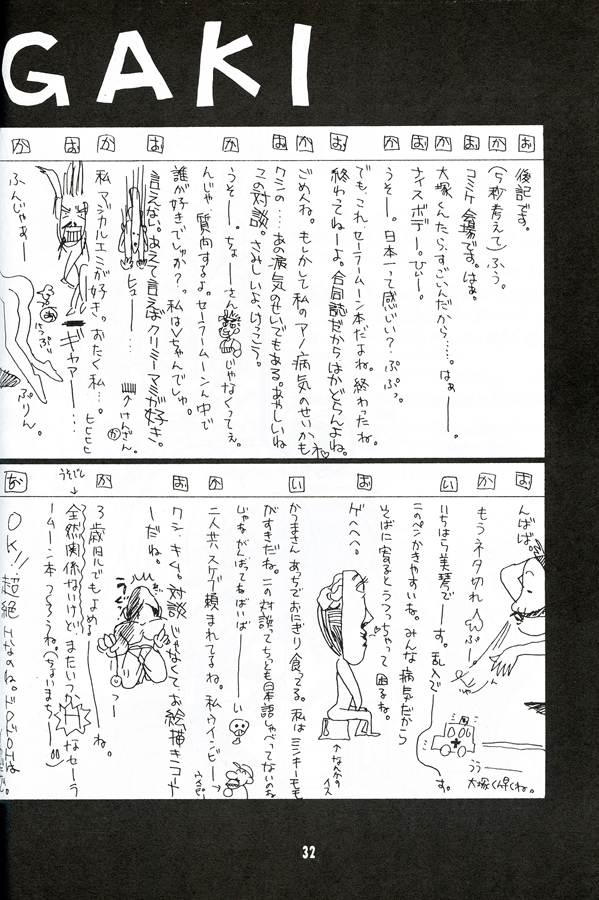 GAKI
お 後記です。
か (5秒考えて)ふう。
お コミケ会場です。はぁ。
か 大塚くんたら、すごいんだから……。はぁ――。
お ナイスボデー。ひぃー。
か うそー。日本一って感じぃ?ぷぷっ。
お でも、これ、セーラームーン本だよね。終わったね。
終わってねーよ。合同誌だからはかどらんよね。
か ごめんね。もしかして私のアノ病気のせいかも
お クシの…あの病気のせいでもある。あやしいね
この対談。さみしいよ、けっこう。
か うそー。ちょーさん じゃなくってぇ。
んじゃ、質問するよ。セーラームーンの中で
誰が好きでしゅか?っ私はVちゃんでしゅ。
お 言えない。あえて言えばクリーミーマミが好き。
ヒュー…
けんざん。
か 私、マジカルエミが好き。おたく私…。
ヒヒヒヒ
お ギャアー…
か ふんじゃぁー
ぷりん。
お んばば。
か もうネタ切れ
ぷー。
大塚くん早くね。
い いちはら美琴でーす。乱入で――す。
このペンかきやすいね。みんな病気だから
そばに寄るとうつっちゃって困るね。
お ゲヘヘヘ。
い かつまさんあっちでおにぎり食ってる。私はミンキーモモ
がすきだね。この対談ってちっとも日本語しゃべってないのね
じゃあがんばってねばいばーい
か 二人共、スケブ頼まれてるね。私ウインビー→
お クシ、キム。対談じゃなくて、お絵描きコーナ
ーだね。
か 3歳児でもよめる――ね。
お 全然関係ないけど、またいつかHなセーラ
ームーン本つくろうね(ちょいまち――)
うそだし
OK!!超絶Hなのね。ドロドロは
32